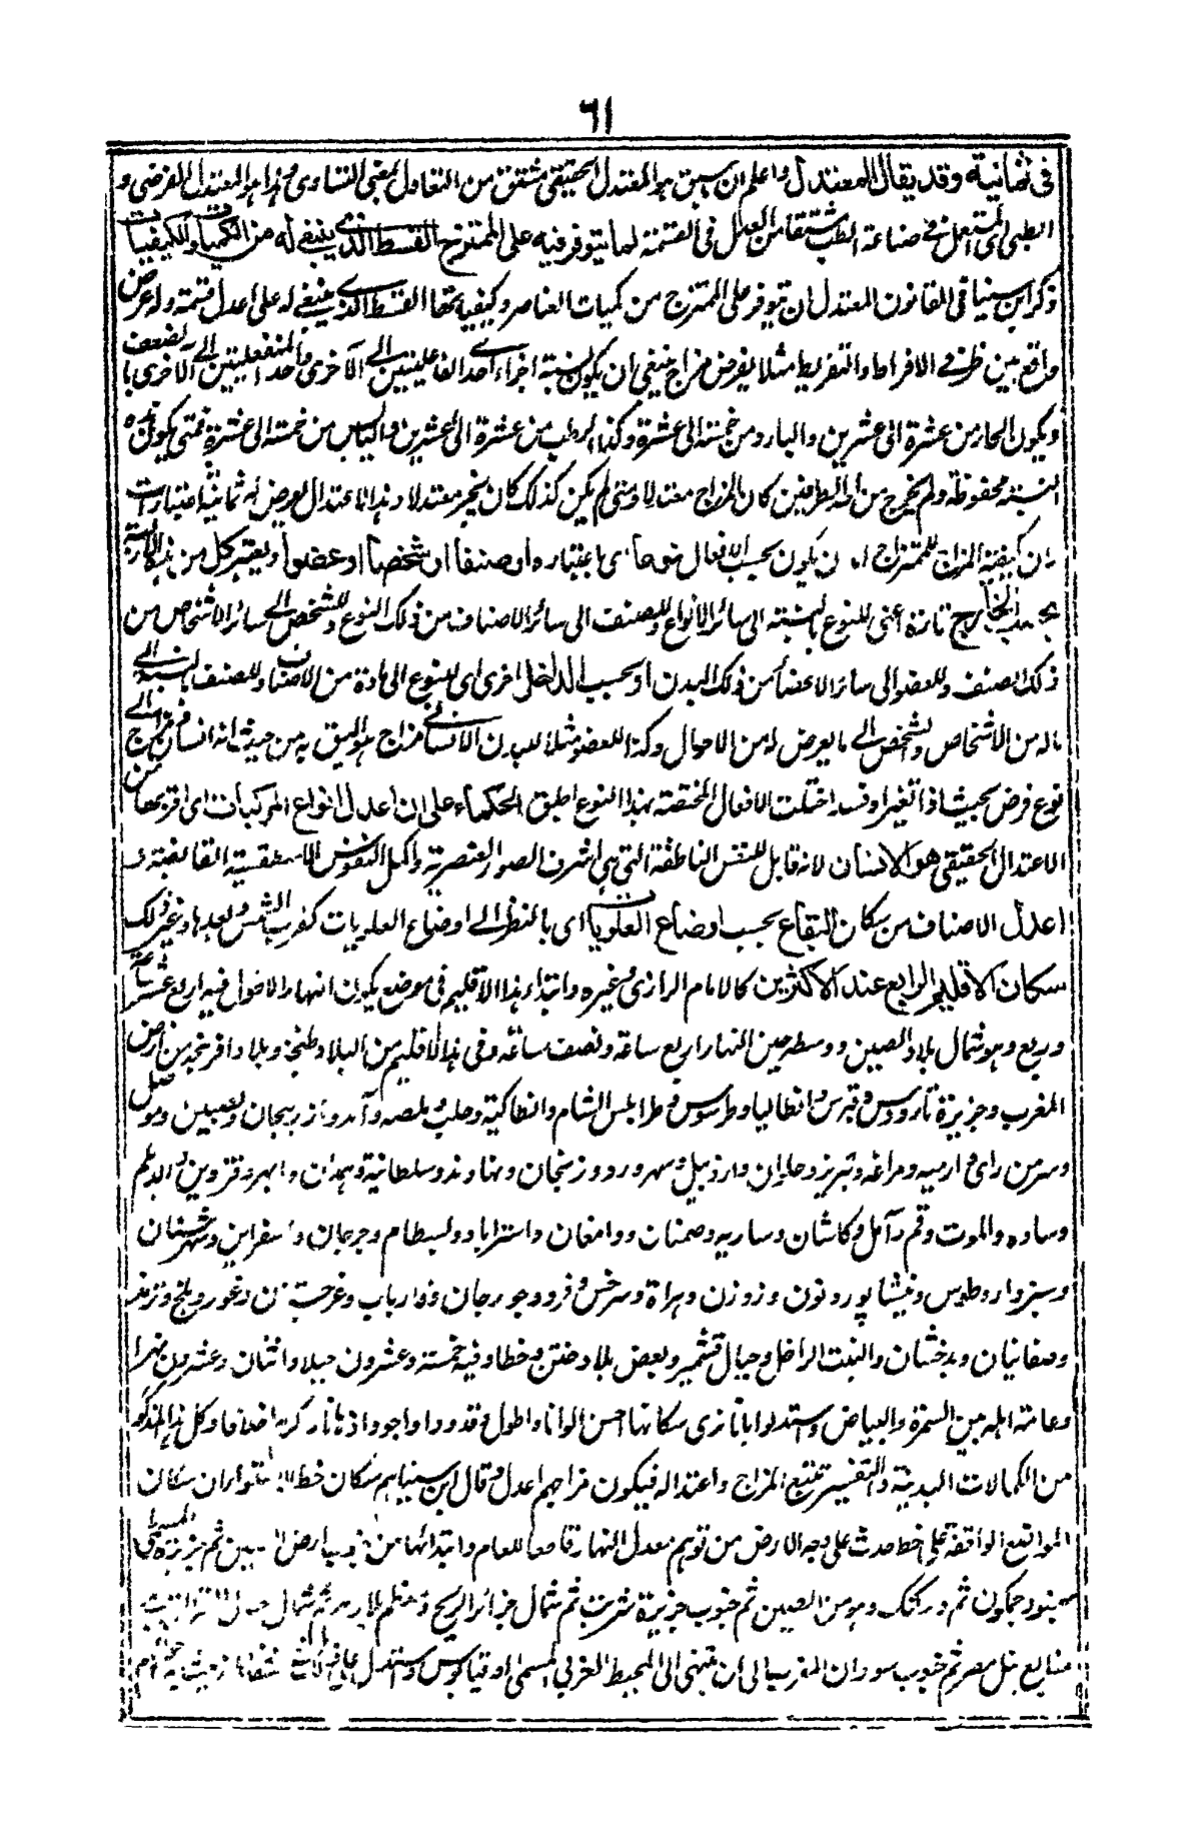 ٦١
فى ثمانية وقد يقال المعتدل واعلم ان سبق هو المعتدل الحقيقى مشتق من التعادل بمعنى التساوى وهذا هو المعتدل الفرضى و
الطبى المستعمل فى صناعة الطب مشتقا من العدل فى القسمة لما يتوفر فيه على الممتزج القسط الذى ينبغى له من الكميات والكيفيات
ذكر ابن سينا فى القانون المعتدل ان يتوفر على الممتزج من كميات العناصر وكيفياتها القسط الذى ينبغى له على اعدل قسمة وله عرض
واقع بين طرفى الافراط والتفريط مثلا يفرض مزاج ينبغى ان يكون نسبة اجزاء احد الفاعليتين الى الآخرى واحد المنفعليتين الى الآخرى بالضعف
ويكون الحار من عشرة الى عشرين والبارد من خمسة الى عشرة وكذا الرطب من عشرة الى عشرين واليابس من خمسة الى عشرة فمتى يكون هذه
النسبة محفوظة ولم يخرج من احد الطرفين كان المزاج معتدلا ومتى لم يكن كذلك كان غير معتدل وهذا الاعتدال العرض له ثمانية اعتبارات
كيفية المزاج للممتزج ان يكون بحسب الافعال نوعا باعتباره او صنفا او شخصا او عضوا ويعتبر كل من هذه الاربعة
بحسب الخارج تارة اعنى للنوع بالنسبة الى سائر الانواع وللصنف الى سائر الاصناف من ذلك النوع وللشخص الى سائر الاشخاص من
ذلك الصنف وللعضو الى سائر الاعضا من ذلك البدن او بحسب الداخل اخرى اى للنوع الى ماله من الاصناف وللصنف بالنسبة الى
ماله من الاشخاص وللشخص الى ما يعرض له من الاحوال وكذا للعضو مثلا للبدن الانسانى مزاج هو اليق به من حيث انه انسان من مزاج اى
نوع فرض بحيث اذا تغير او فسد اختلت الافعال المختصة بهذا النوع اطبق الحكماء على ان اعدل انواع المركبات اى اقربها من
الاعتدال الحقيقى هو الانسان لانه قابل للنفس الناطقة التى هى اشرف الصور العنصرية واكمل النفوس الاسطقسية الفائضة و
اعدل الاصناف من سكان البقاع بحسب اوضاع العلويات اى بالنظر الى اوضاع العلويات كقرب الشمس وبعدها وغير ذلك
سكان الاقليم الرابع عند الاكثرين كالامام الرازى وغيره وابتداء هذا الاقليم فى موضع يكون انهار الاطول فيه اربع عشر ساعة
وربع وهو شمال بلاد الصين ووسطه حين النهار اربع ساعة ونصف ساعة وفى هذا الاقليم من البلاد طنجة وبلاد افرنجة من ارض
المغرب وجزيرة رودس وقبرس وانطاليا وطرسوس وطرابلس الشام وانطاكية وحلب وملصه وآمد واذربيجان ونصيبين وموصل
وسر من راى وارميه ومراغه وتبريز وحلوان واردبيل وسهرورد وزنجان ونهاوند وسلطانية وهمدان وابهر وقزوين والديلم
وساوه والموت وقم وآمل وكاشان وساريه وصمنان ودامغان واستراباد وبسطام وجرجان واسفراين وشهرستان
وسبزوار وطوس ونيشاپور وتون وزوزن وهراة وسرخس ومرو وجورجان وفارياب وغرجستان وغور وبلخ وترمذ
وصغانيان وبدخشان والتبت الداخل وجبال قشمير وبعض بلاد ختن وخطا وفيه خمسة وعشرون جبلا واثنان وعشرون نهرا
وعامة اهله بين السمرة والبياض واستدلوا بانا نرى سكانها احسن الوانا واطول قدودا واجود اذهانا واكرم اخلاقا وكل هذا المذكور
من الكمالات البدنية والنفسية يتبع المزاج واعتداله فيكون مزاجهم اعدل وقال ابن سينا هم سكان خط الاستواء ان سكان
المواقع الواقعة على خط حدث على وجه الارض من توهم معدل النهار قاطعا للعالم وابتدائها من ارض الصين ثم جزيرة
جمكوت ثم وكنك وهو من الصين ثم جنوب جزيرة سرنديب ثم شمال جزائر الريح شمال جبال القمر
منابع نيل مصر ثم جنوب سودان المغرب الى ان ينتهى الى المحيط الغربى المسمى اوقيانوس واستدل